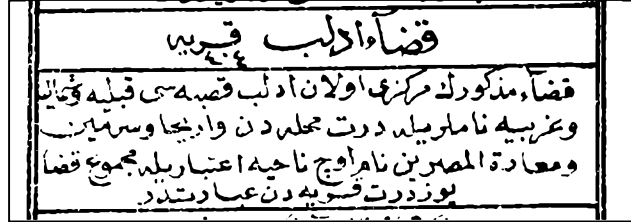 قضآء ادلب قريه
١٠٤
قضآء مذكورك مركزى اولان ادلب قصبه سى قبليه وشماليه
وغربيه ناملريله درت محله دن واريحا وسرمين
ومعارة المصرين نام اوچ ناحيه اعتباريله مجموع قضا
يوز درت قريه دن عبارتدر